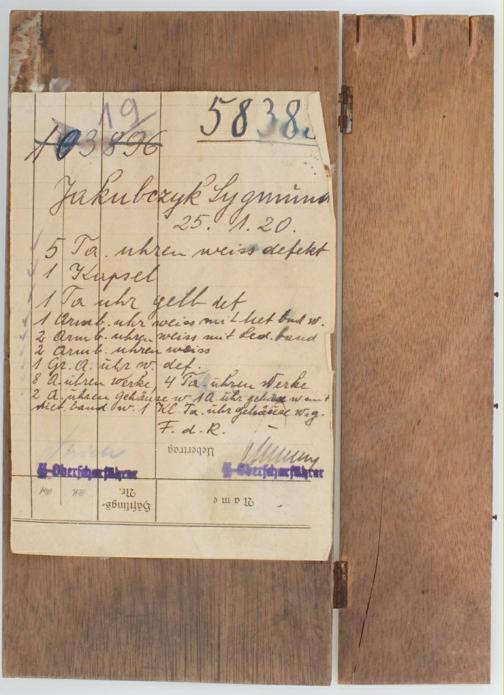 19
103896
5838
Jakubczyk Sygmund
25. 1. 20.
5 Ta. uhren weiss defekt
1 Kapsel
1 Ta uhr gelb def
1 Armb. uhr weiss mit bnd w.
2 Armb. uhren weiss mit Led. band
2 Armb. uhren weiss
1 Gr. A. uhr w. def.
8 A. uhren werke, 4 Ta. uhren Werke
2 A. uhren Gehäuse w 1 A uhr gehäuse w mit
band w. 1 Kl. Ta. uhr gehäuse w. g.
F. d. R.
Uebertrag
ᛋᛋ-Oberscharführer ᛋᛋ-Oberscharführer
Häftlings-Nr. Name